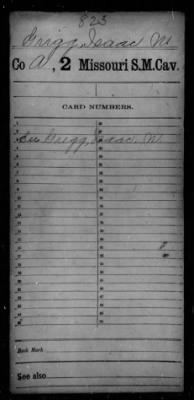 823
Grigg, Isaac N.
Co A, 2 Missouri S.M.Cav.
CARD NUMBERS.
See Gregg, Isaac, N.
Book Mark:
See also